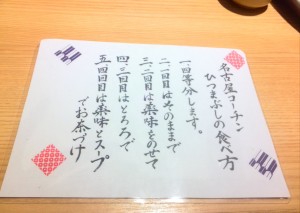 名古屋コーチン
ひつまぶしの食べ方
一、四等分します。
二、一回目はそのままで
三、二回目は薬味をのせて
四、三回目はとろろで
五、四回目は薬味とスープ
でお茶づけ